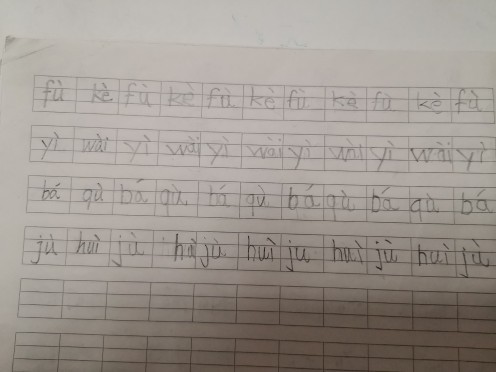 fù kè fù kè fù kè fù kè fù kè fù
yì wài yì wài yì wài yì wài yì wài yì
bá qù bá qù bá qù bá qù bá qù bá
jù huì jù huì jù huì ju huì jù huì jù